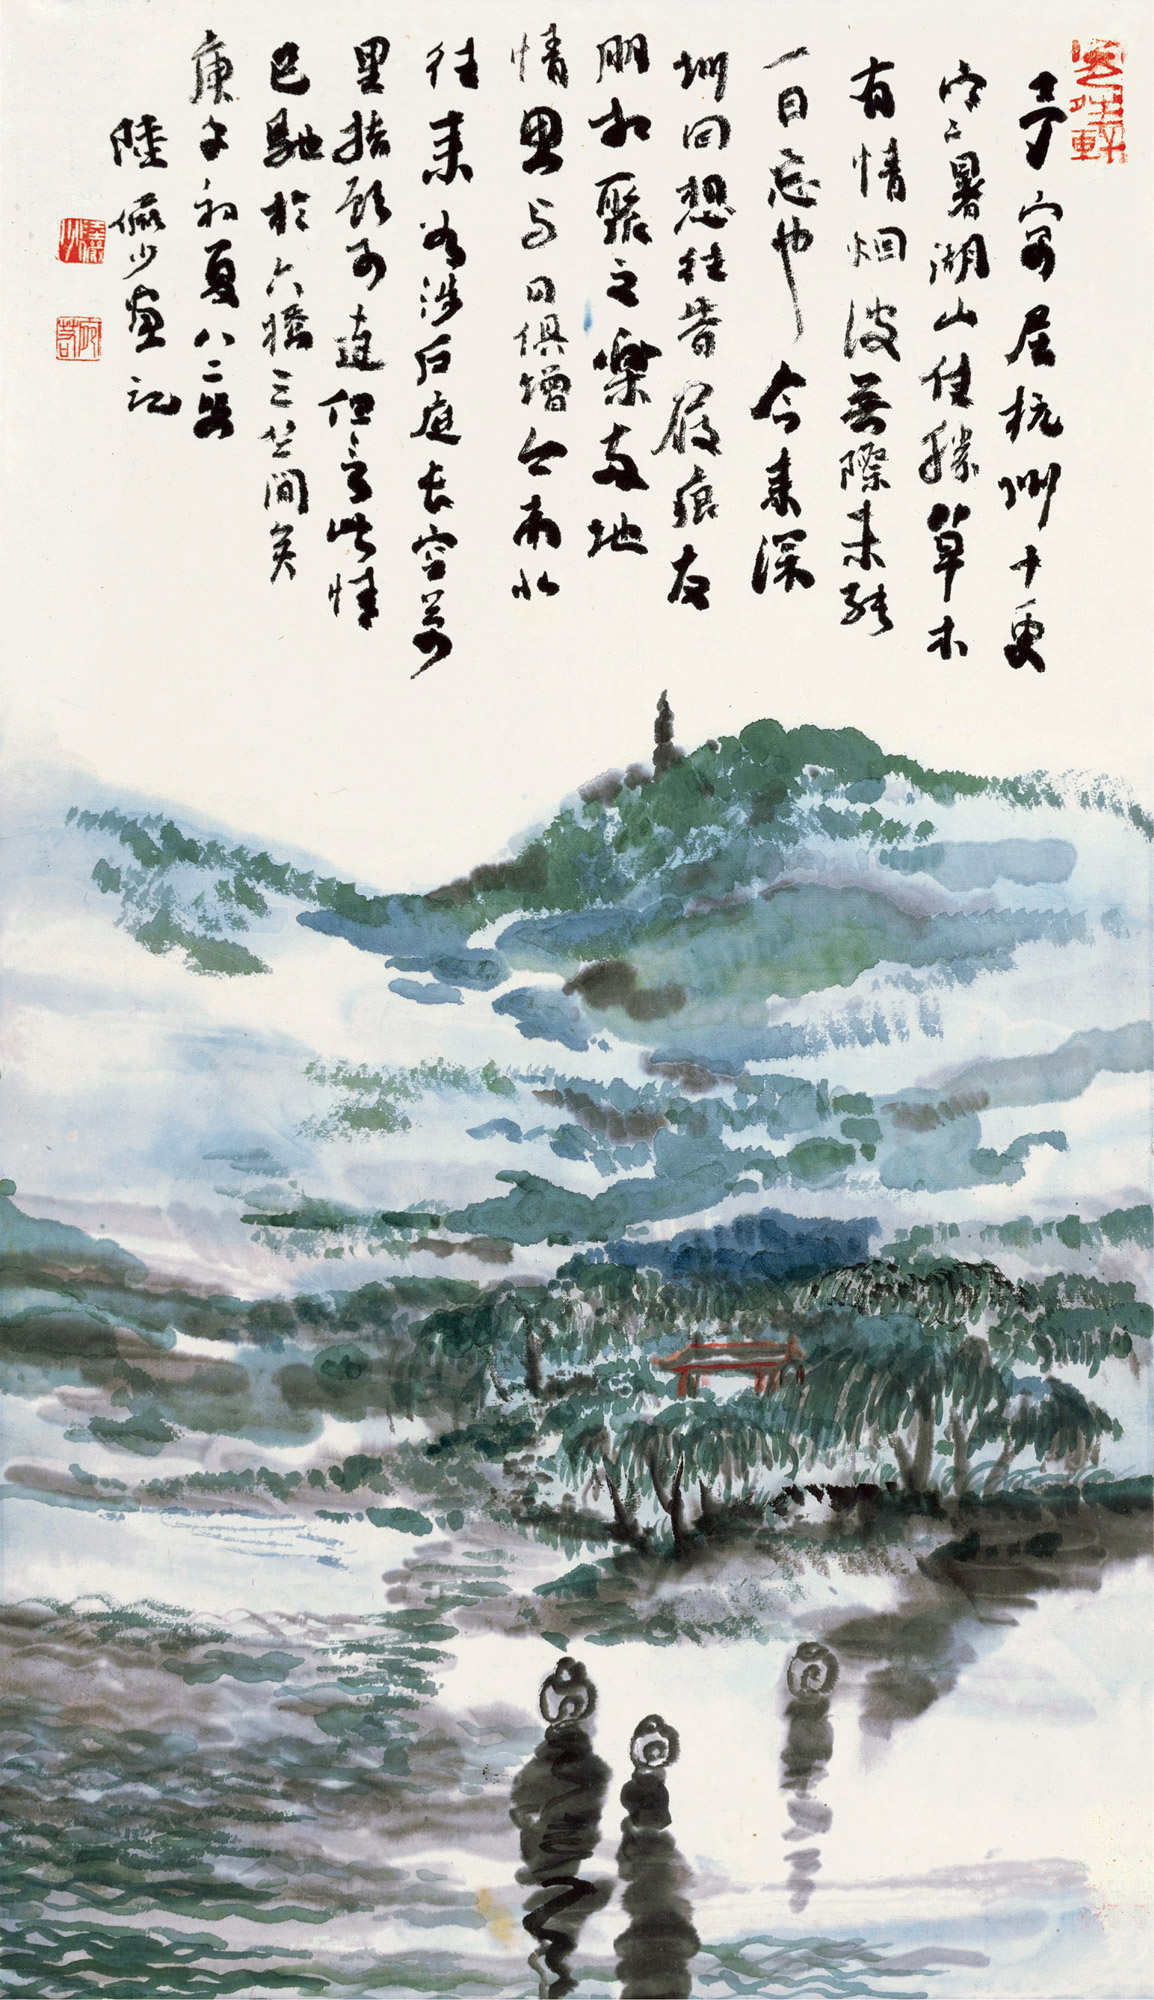 予寓居杭州十更
寒暑湖山佳勝草木
有情烟波無際未能
一日忘也今来深
圳回想往昔屐痕友
朋相聚之樂兩地
情思与日俱增今南北
往来為涉后庭长空萬
里指顾可達但言此情
已馳於六橋三竺間矣
庚午初夏八二叟
陸儼少畫記
宛若